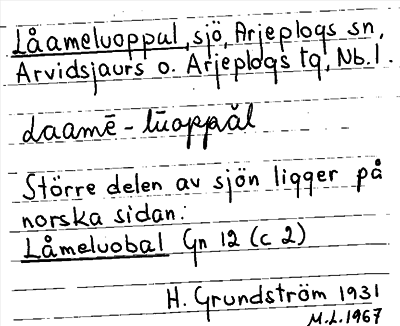 Låameluoppal, sjö, Arjeplogs sn,
Arvidsjaurs o. Arjeplogs tg, Nb.l.
laamē - lūoppăl
Större delen av sjön ligger på
norska sidan:
Låmeluobal Gn 12 (c 2)
H. Grundström 1931
M.L.1967